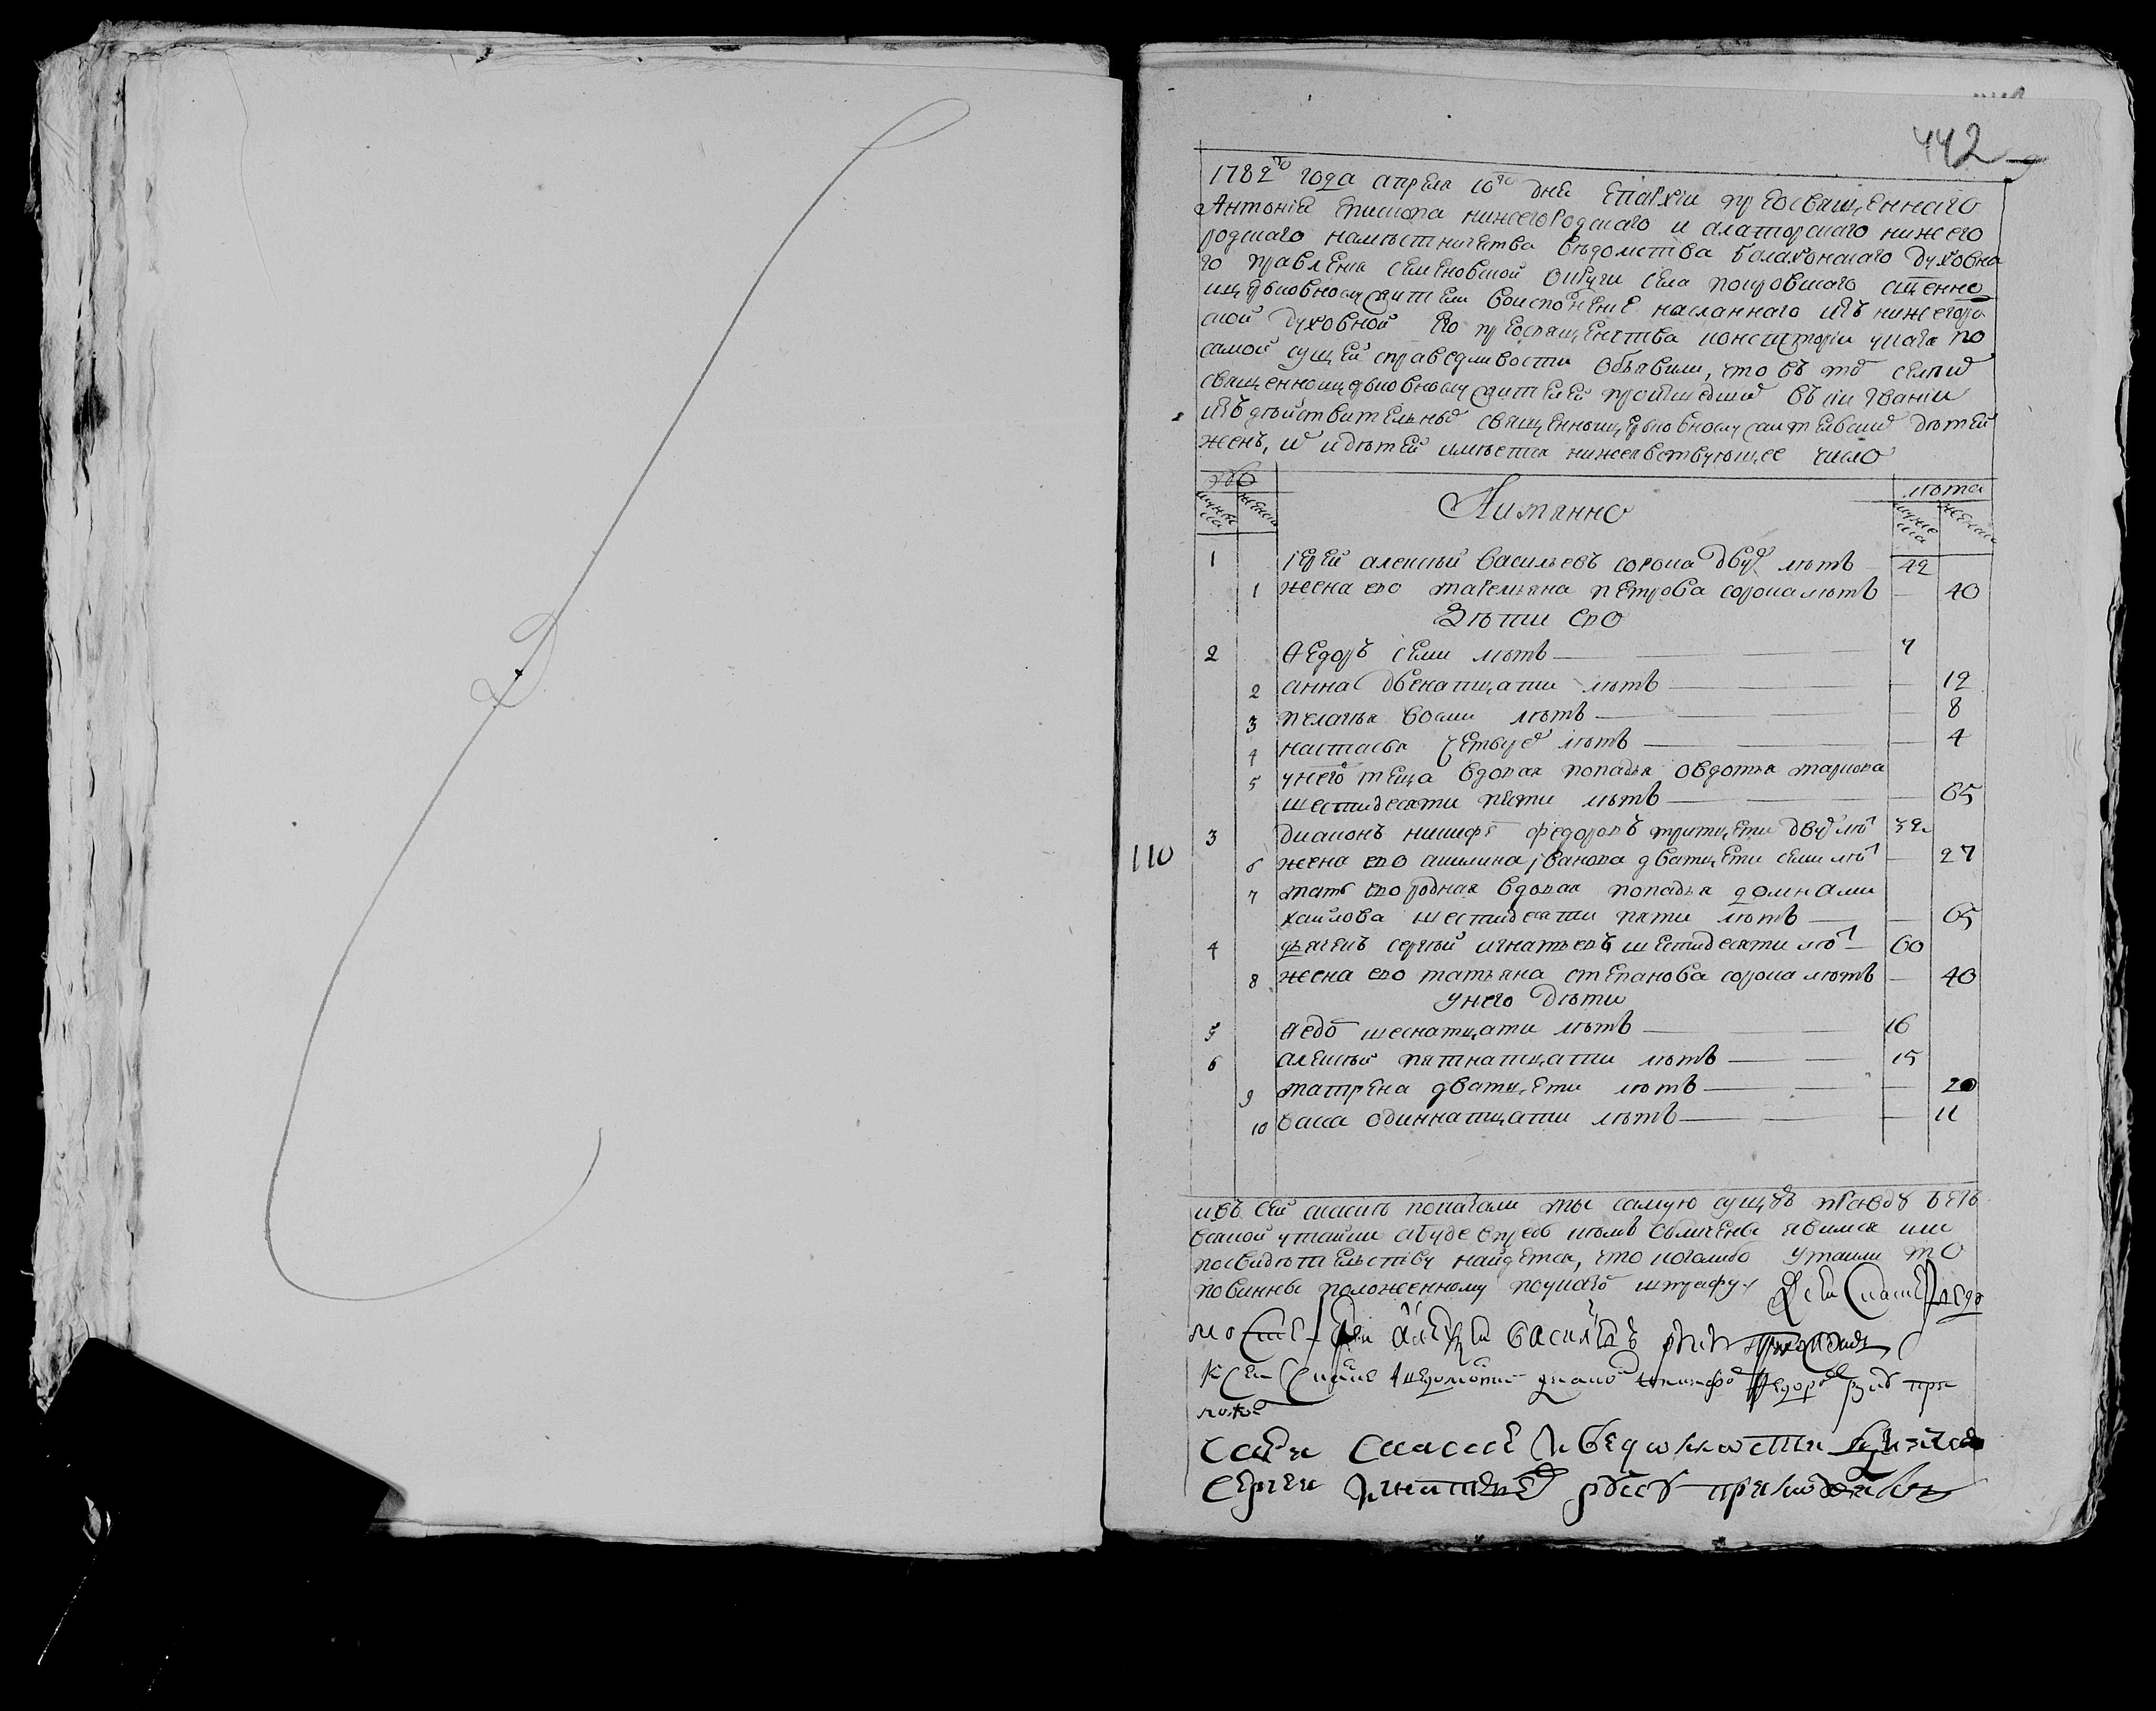 442
1782го года апреля 10го дня епархіи преосвященнаго
Антонія епископа нижегородскаго и алаторскаго нижего
родскаго наместничества ведомства балахонскаго духовна
го правленія семеновской округи села покровскаго священно
церковнослужители воисполнение насланнаго изъ нижегоро
ской духовной его преосвященства консистори указа по
самой сущей справедливости объявили, что въ том селе
священноцерковнослужителей произшедших въ сии звании
изъ действительных священноцерковнослужительских детей
женъ, и детей имеется нижеявствующее число
мужеска
женска
Аимянно
лета
мужеска
женска
1 іерей алексей васильевъ сорока двух летъ 42
1 жена ево маремьяна петрова сорока летъ — 40
Дети ево
2 ѳедоръ семи летъ — 7
2 анна двенатцати летъ — 12
3 пелагея восми летъ — 8
4 настасья четырех летъ — 4
5 унего теща вдовая попадья овдотья маркова
шестидесяти пяти летъ — 65
3 дияконъ никифо федоровъ тритцети двух ле 32
110
6 жена ево акилина іванова дватцети семи ле — 27
7 мать ево родная вдовая попадья домна ми
хайлова шестидесяти пяти летъ — 65
4 дьячекъ сергей игнатьевъ шестидесяти ле 60
8 жена ево татьяна степанова сорока летъ — 40
унего дети
5 ѳедо шеснатцати летъ — 16
6 алексей пятнатцати летъ — 15
9 матрена дватцети летъ — 20
10 васа одиннатцати летъ — 11
въ сей скаске показали мы самую сущую правду безъ
всякой утайки абуде впредь кемъ обличены явимся или
посвидетельству найдется, что коголибо утаили то
повинны положенному поуказо штрафу К сей скаске
іерей алексей васильевъ руку приложилъ
К сей скаске диакон никифо ѳедоро руку при
ложи
К сей скаске
сергеи игнатьев руку приложилъ